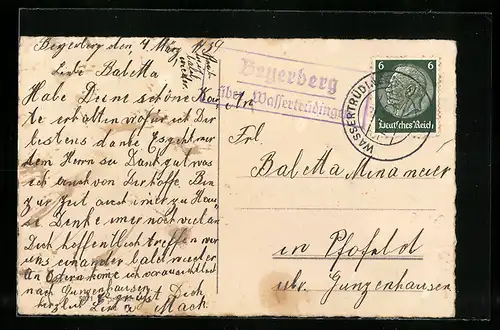 Beyerberg den 4 März 1939
Liebe Babetta
Habe Deine schöne Kar
te erhalten wofür ich Dir
bestens danke Es geht mir
dem Herrn sei Dank gut was
ich auch von Dir hoffe Bin
zur Zeit auch immer zu Hau
se Denke immer noch viel an
Dich hoffentlich treffen wir
uns einander bald wieder
An Ostern kome ich voraussichtlich
nach Gunzenhausen
Es grüßt Dich
herzlich Deine Mach
Beyerberg
über Wassertrüdingen
WASSERTRÜDIN
6 6
Deutsches Reich
An
Frl.
Babetta Minameier
in Pfofeld
üb. Gunzenhausen